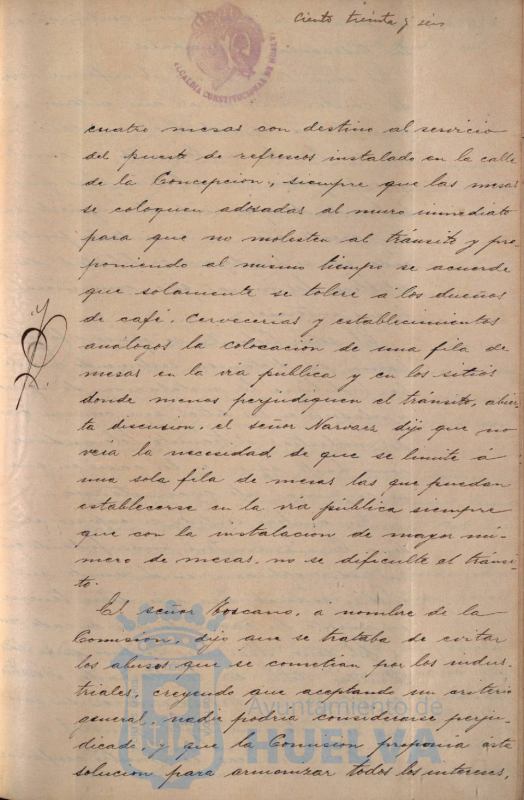 Ciento treinta y seis
ALCALDIA CONSTITUCIONAL DE HUELVA
cuatro mesas con destino al servicio
del puesto de refrescos instalado en la calle
de la Concepcion, siempre que las mesas
se coloquen adosadas al muro inmediato
para que no molesten al tránsito y pro-
poniendo al mismo tiempo se acuerde
que solamente se tolere á los dueños
de café, cervecerías y establecimientos
análogos la colocación de una fila de
mesas en la vía pública y en los sitios
donde menos perjudiquen el tránsito, abier-
ta discusion, el señor Narvaez dijo que no
veía la necesidad de que se limite á
una sola fila de mesas las que puedan
establecerse en la vía pública siempre
que con la instalacion de mayor nú-
mero de mesas, no se dificulte el tránsi-
to.
El señor Toscano, á nombre de la
Comision, dijo que se trataba de evitar
los abusos que se cometian por los indus-
triales, creyendo que aceptando un criterio
general, nadie podria considerarse perju-
dicado, y que la Comision proponia esta
solucion para armonizar todos los intereses,
Ayuntamiento de
HUELVA